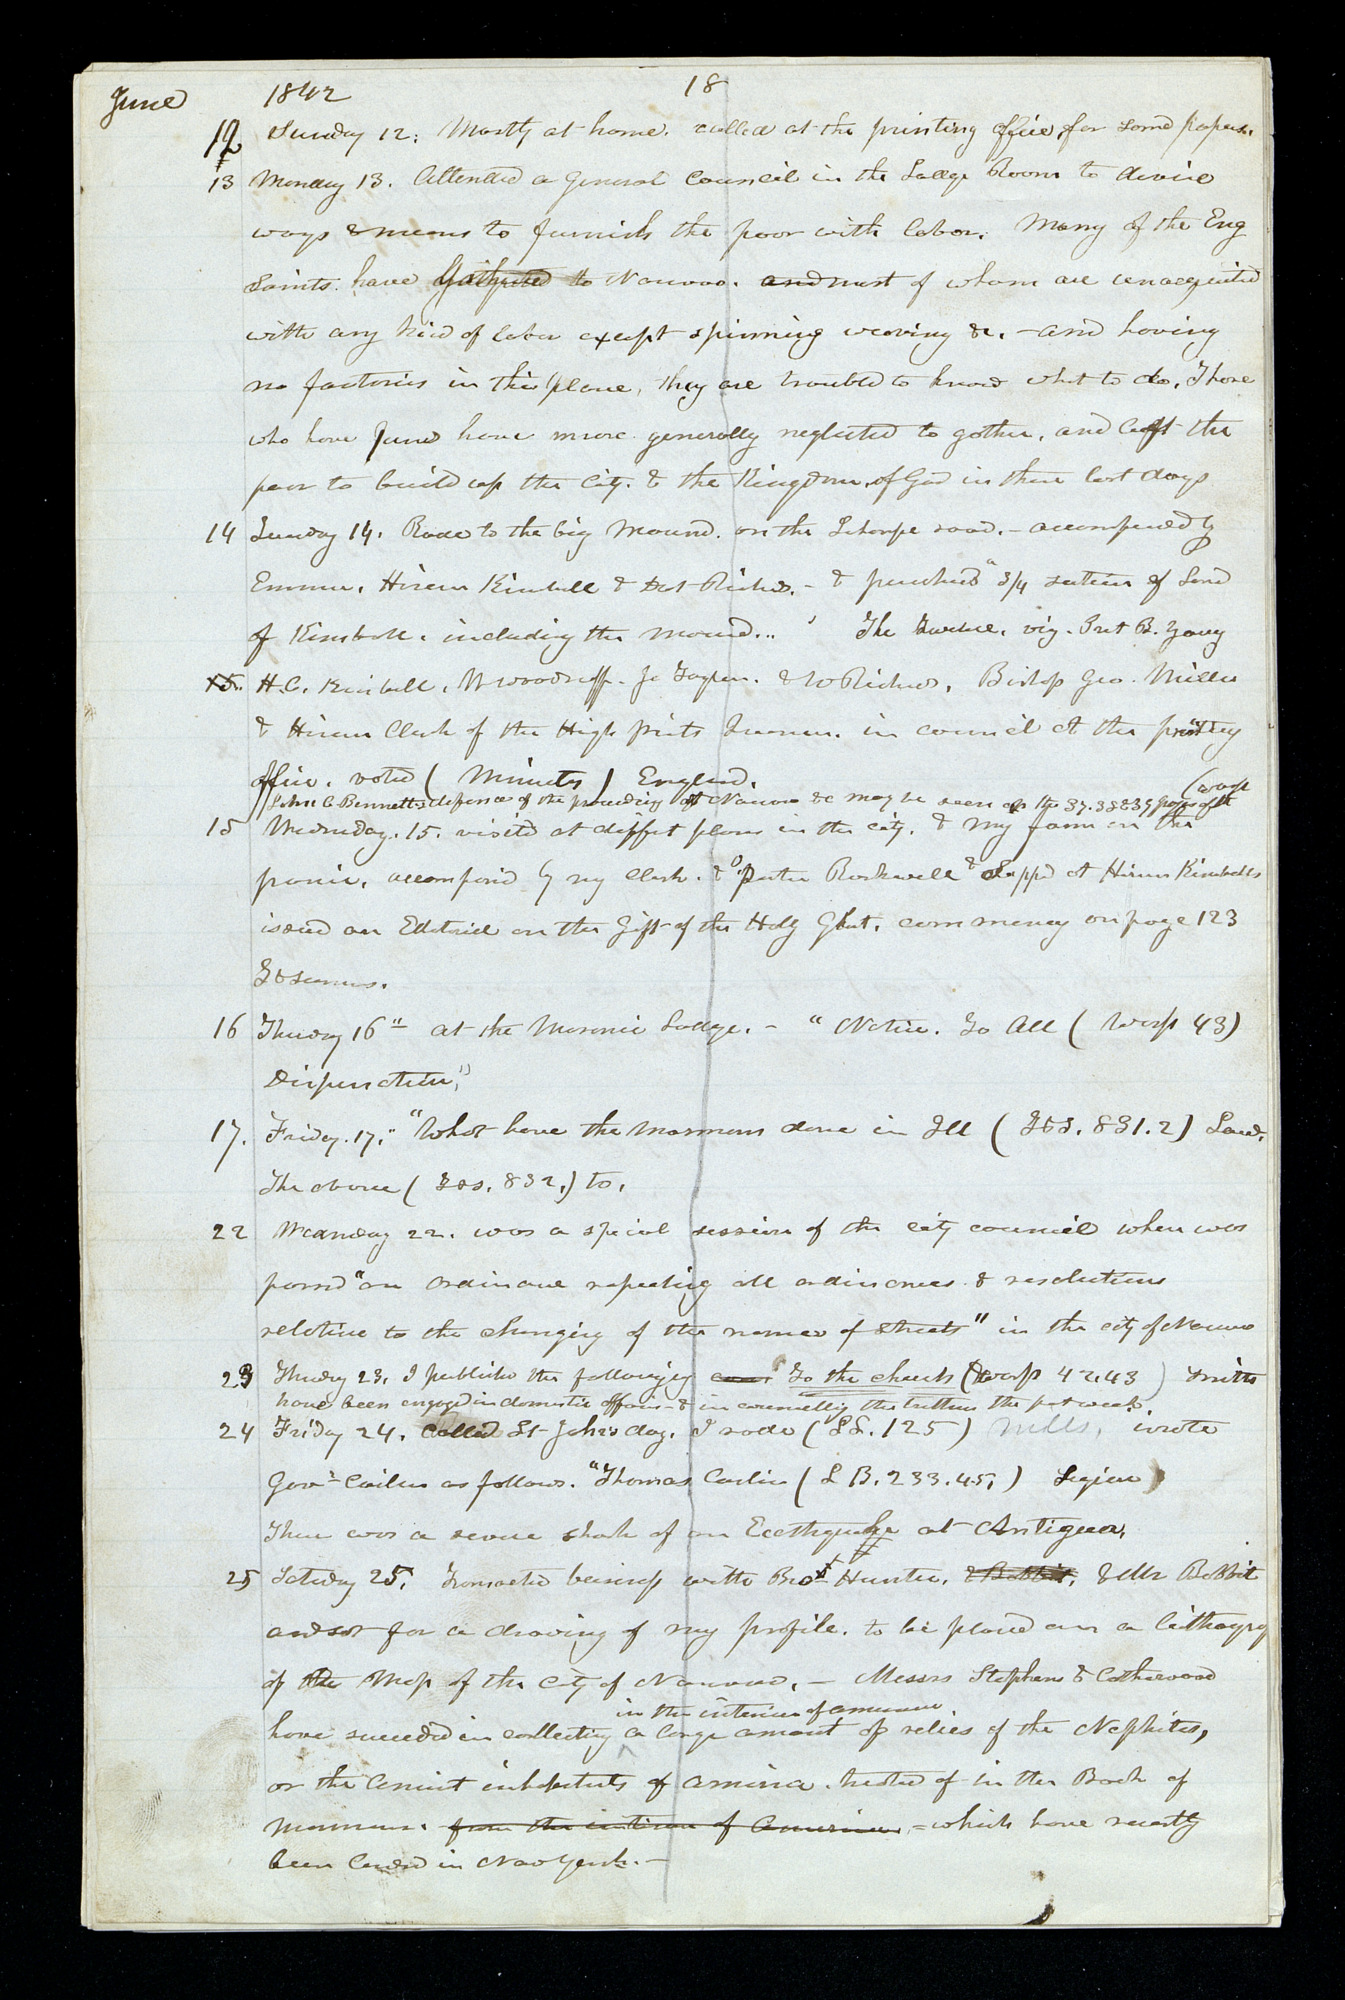 June 1842 18
12 Sunday 12: Mostly at home. called at the printing office, for some papers.
13 Monday 13. Attended a general Council in the Lodge Room to devise
ways & means to furnish the poor with labor. Many of the Eng
Saints. have Gathered to Nauvoo. and most of whom are unacquainted
with any kind of labor except spinning weaving &c. - and having
no factories in this place, they are troubled to know what to do. Those
who have funds have more generally neglected to gather, and left the
poor to build up the City. & the Kingdom, of God in these last days
14 Tuesday 14. Rode to the big Mound. on the Laharpe road. - accompanied by
Emma, Hiram Kimball & Dr Richds. - & purchased 3/4 section of land
of Kimball. including the mound... The Twelve, viz. Prest B. Young
15. H.C. Kimball, W Woodruff. Jo Taylor. & W Richards, Bishop Geo. Miller
& Hiram Clark of the High priests Quorum. in council at the printing
office. voted ( Minutes ) England.
John C. Bennetts defence of the proceeding at Nauvoo &c may be seen on the 37.38&39 pages of the (wasp
15 Wednesday. 15. visited at different places in the city. & my farm on the
prairie, accompanied by my clerk. & O. Porter Rockwell & Supped at Hiram Kimballs
issued an Editorial on the Gift of the Holy Ghost, commencing on page 123
T&Seasons.
16 Thursday 16th at the Masonic Lodge. - "Notice. To All ( Wasp 43)
Disfunction."
17. Friday. 17. "What have the mormons done in Ill ( T&S. 831.2) Laws.
The above ( T&S. 832.) to.
22 Wednesday 22. was a special session of the city council when was
passed "an ordinance repealing all ordinances & resolutions
relative to the changing of the names of streets" in the city of Nauvoo
23 Thursday 23. I publish the following To the church (Wasp 42.43 ) Smith
have been engaged in domestic affairs - & in counselling the brethren the past week.
24 Friday 24. called St John's day. I rode (L.L. 125) Mills, wrote
Govr Carlin as follows. "Thomas Carlin ( L B. 233.4.5. ) Legion
There was a severe shock of an Earthquake at Antigua.
25 Saturday 25. Transacted business with Bro Hunter. & Babbit. & Mr Babbit
and sat for a drawing of my profile. to be placed on a lithography
of the Map of the City of Nauvoo. - Messrs Stephens & Catherwood
in the interior of america
have succeeded in collecting a large amount of relics of the Nephites,
or the ancient inhabitants of america. treated of in the Book of
Mormon. from the interior of America = which have recently
been landed in New York. -